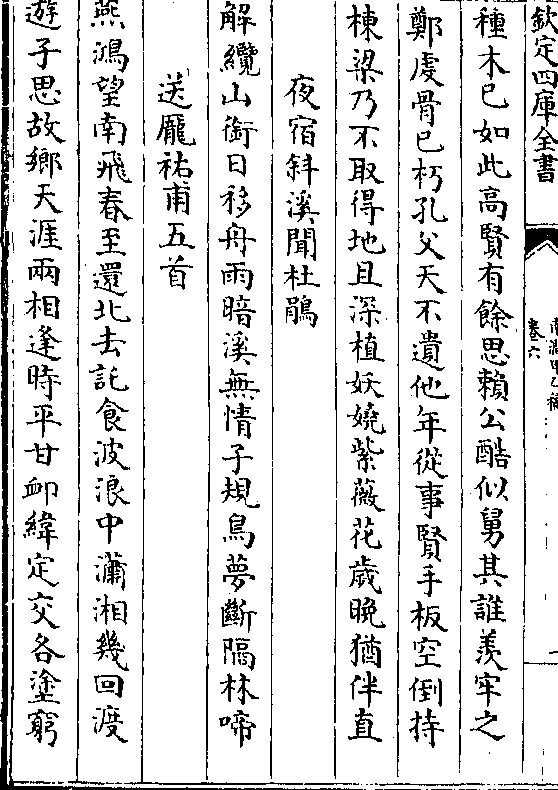 欽定四庫全書
南澗甲乙稿
卷六
種木已如此高賢有餘思賴公酷似舅其誰羨牢之
鄭虔骨已朽孔父天不遺他年從事賢手板空倒持
棟梁乃不取得地且深植妖嬈紫薇花歲晚猶伴直
夜宿斜溪聞杜鵑
解纜山銜日移舟雨暗溪無情子規鳥夢斷隔林啼
送龎祐甫五首
燕鴻望南飛春至還北去託食波浪中瀟湘幾回渡
遊子思故鄉天涯兩相逢時平甘卹緯定交各塗窮